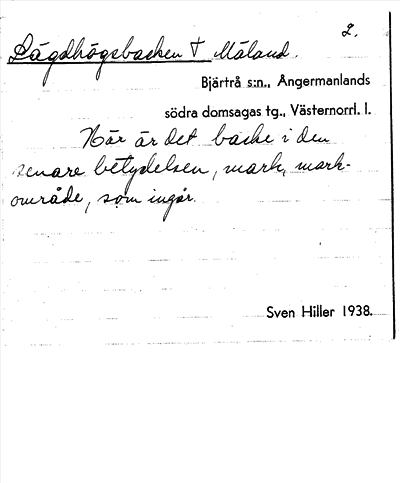 2.
Lägdhögsbacken † Måland.
Bjärtrå s:n., Ångermanlands
södra domsagas tg., Västernorrl. l.
Här är det backe i den
senare betydelsen, mark, mark-
område, som ingår.
Sven Hiller 1938.